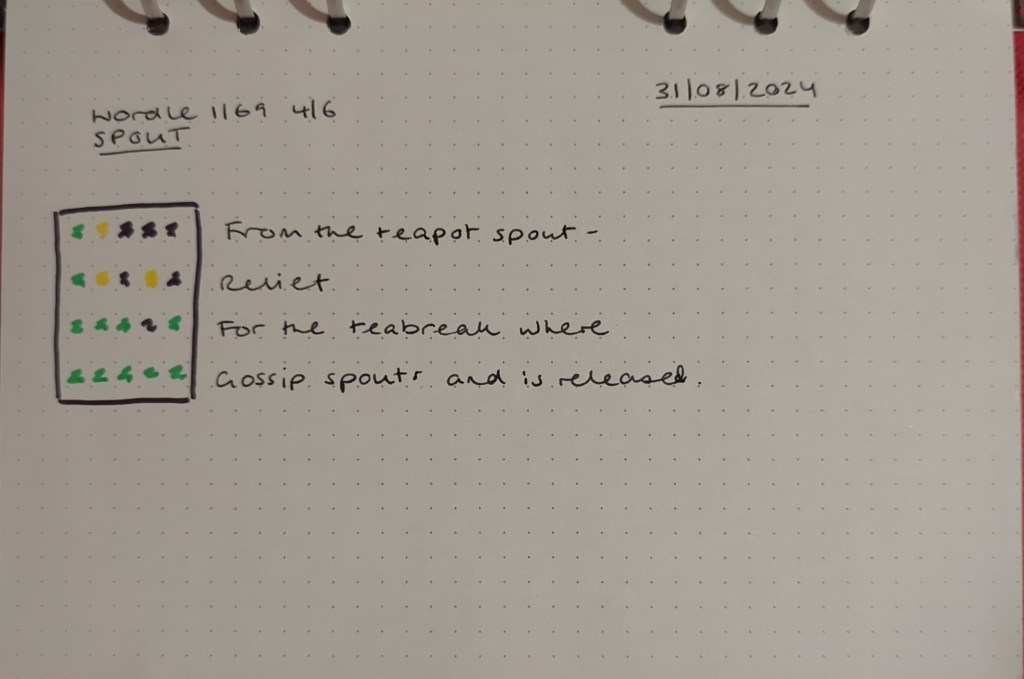 Wordle 1169 4/6
SPOUT
31/08/2024
From the teapot spout -
Relief
For the teabreak where
Gossip spouts and is released.